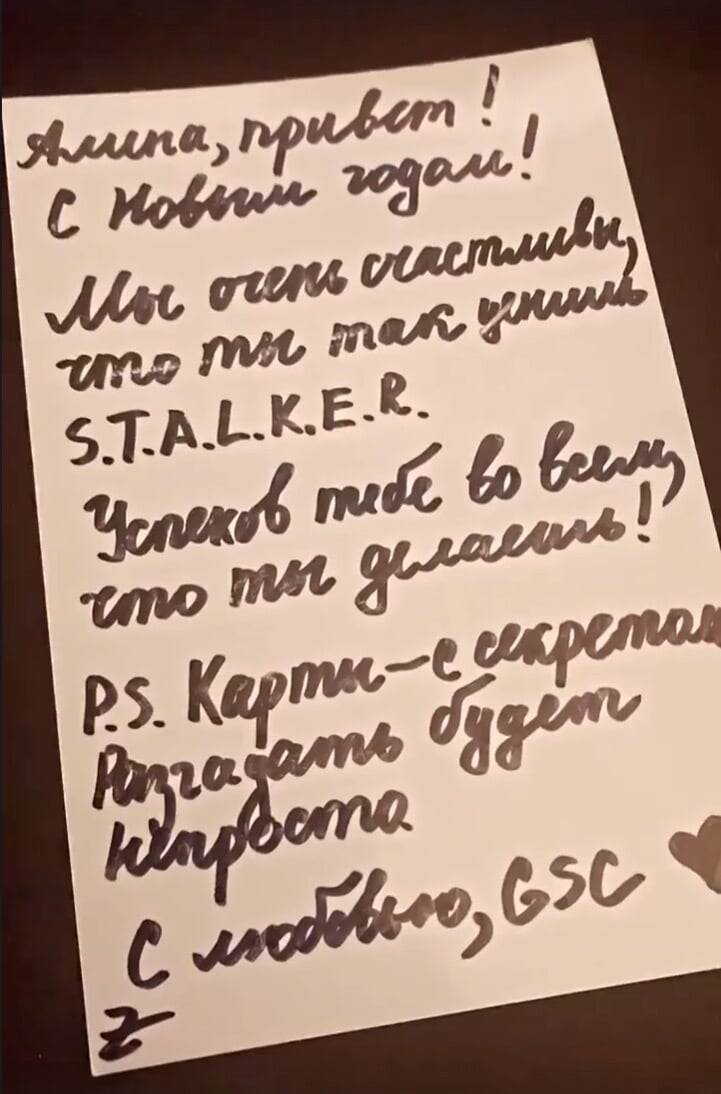 Алина, привет!
С Новым годом!
Мы очень счастливы,
что ты так ценишь
S.T.A.L.K.E.R.
Успехов тебе во всем,
что ты делаешь!
P.S. Карты – с секретом
Разгадать будет
непросто
С любовью, GSC
Z